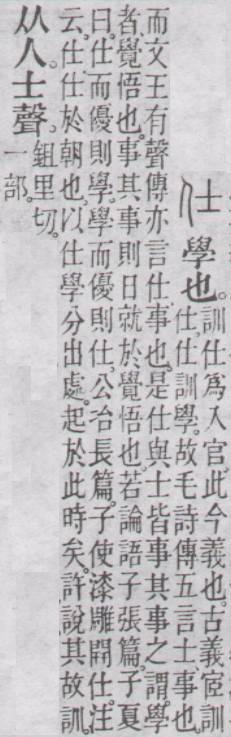 仕 學也。訓仕爲入官。此今義也。古義宦訓
仕。仕訓學。故毛詩傳五言士事也。
而文王有聲傳亦言仕事也。是仕與士皆事其事之謂。學
者、覺悟也。事其事則日就於覺悟也。若論語子張篇。子夏
曰。仕而優則學。學而優則仕。公冶長篇。子使漆雕開仕。注
云。仕、仕於朝也。以仕學分出處。起於此時矣。許說其故訓。
从人士聲。鉏里切。
一部。